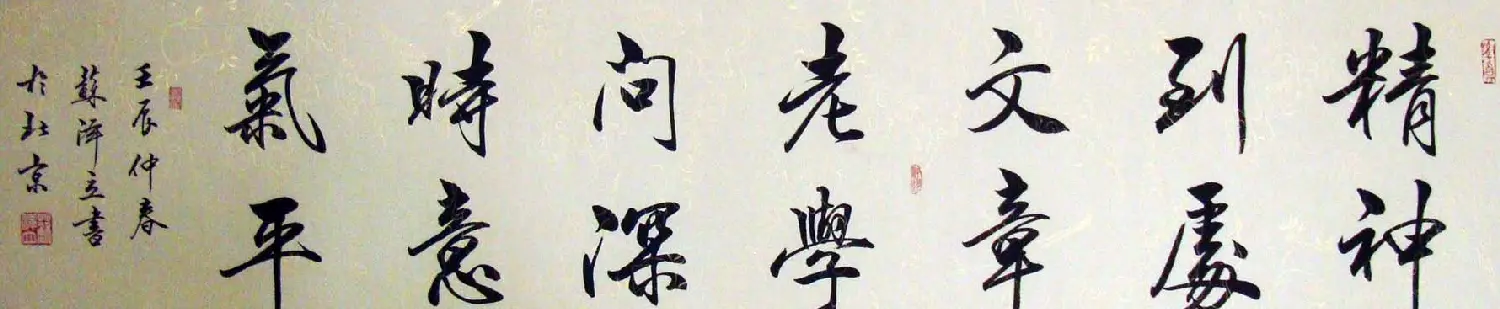 精神
到處
文章
老學
問深
時意
氣平
壬辰仲春
蘇澤立書
於北京